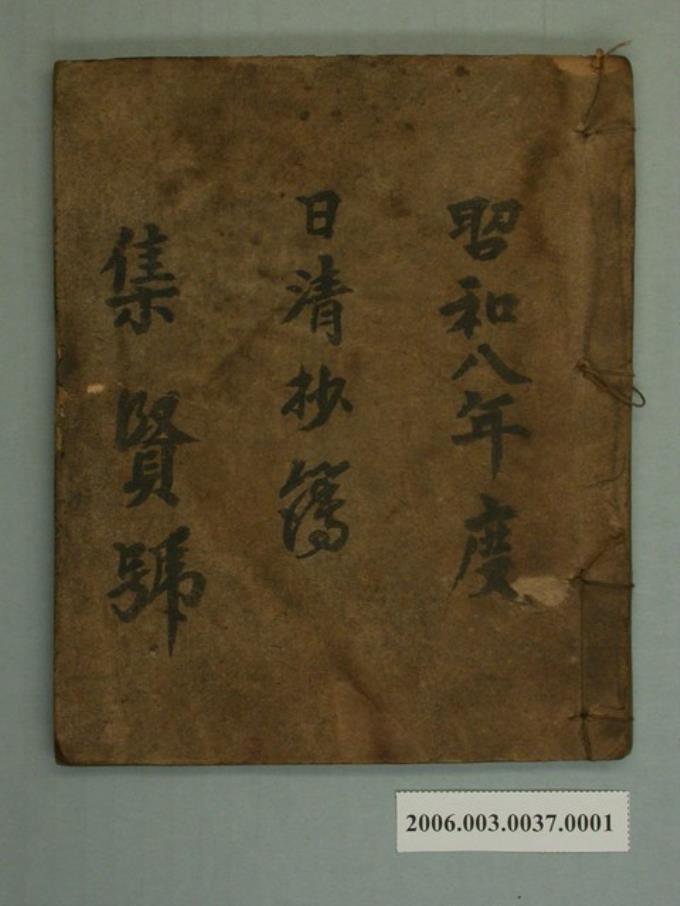 昭和八年度
日清抄簿
集賢號
2006.003.0037.0001